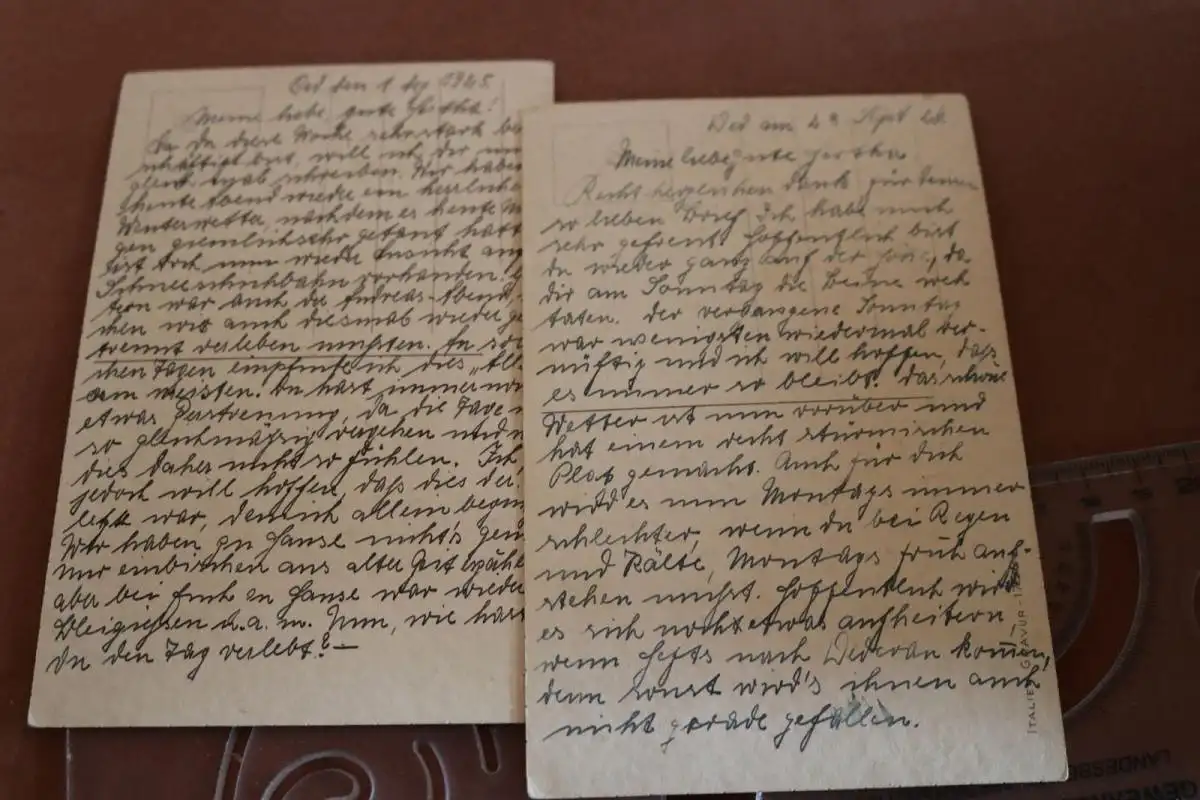 Oed den 1 Dez 1945.
Meine liebe, gute Hertha!
Da du diese Woche sehr stark be-
schäftigt bist, will ich dir nun
gleich schreiben. Wir haben
heute Abend wieder ein herrliche
Winterwetter, nachdem es heute Mor
gen ziemlich sehr getaut hatt
ist doch nun wieder Aussicht auf
Schneeschuhbahn vorhanden!
tern war auch die Andreas-Abend,
chen wir auch diesmal wieder ge
trennt verleben mussten. An sol
chen Tagen empfinde ich dies "All
am meisten. Du hast immer noch
etwas Zerstreuung, da die Tage
so gleichmässig vergehen und
dies daher nicht so fühlen. Ich
jedoch will hoffen, daß dies der
letzte war, den ich allein
Wir haben zu Hause nicht's
nur ein bischen aus alter Zeit erzähl
aber bei Euch zu Hause war wieder
Bleigießen u.a.m. Nun, wie hast
du den Tag verlebt? —
Oed am 23 Sept
Meine liebe gute Hertha
Recht herzlichen Dank für deinen
so lieben Brief. Ich habe mich
sehr gefreut. Hoffentlich bist
du wieder ganz auf der Höhe, da
dir am Sonntag die Beine weh
taten. Der vergangene Sonntag
war wenigsten wiedermal ver-
nüftig und ich will hoffen, daß
es immer so bleibt. Das schöne
Wetter ist nun vorüber und
hat einem recht stürmischen
Platz gemacht. Auch für dich
wird es nun Montags immer
schlechter, wenn du bei Regen
und Kälte, Montags früh auf-
stehen mußt. Hoffentlich wird
es sich noch etwas aufheitern
wenn nach Oederan kommen,
denn sonst wird's ihnen auch
nicht gerade gefallen.
ITALIE GRAVUR
LANDESB
GEWER